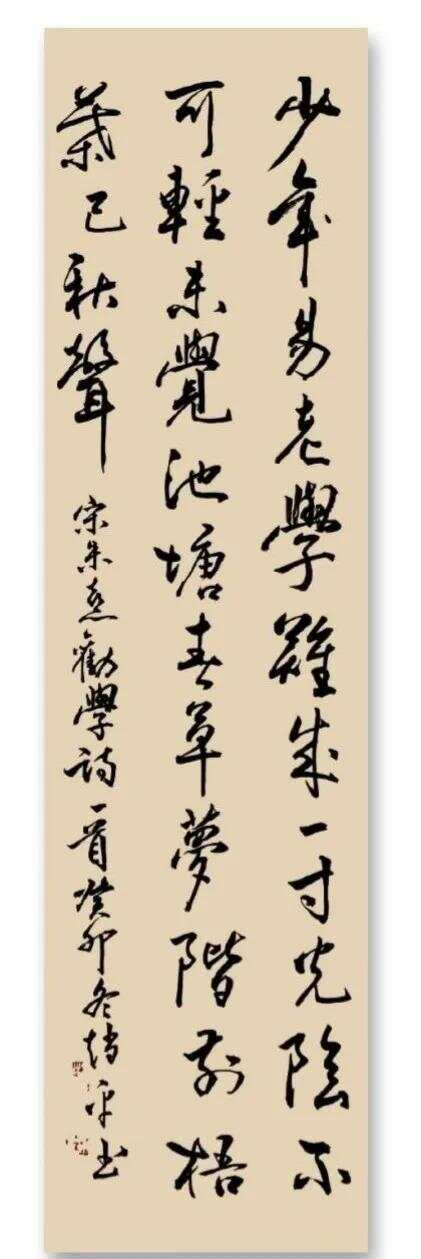 少年易老學難成一寸光陰不
可輕未覺池塘春草夢階前梧
葉已秋聲
宋朱熹勸學詩一首癸卯冬趙平书